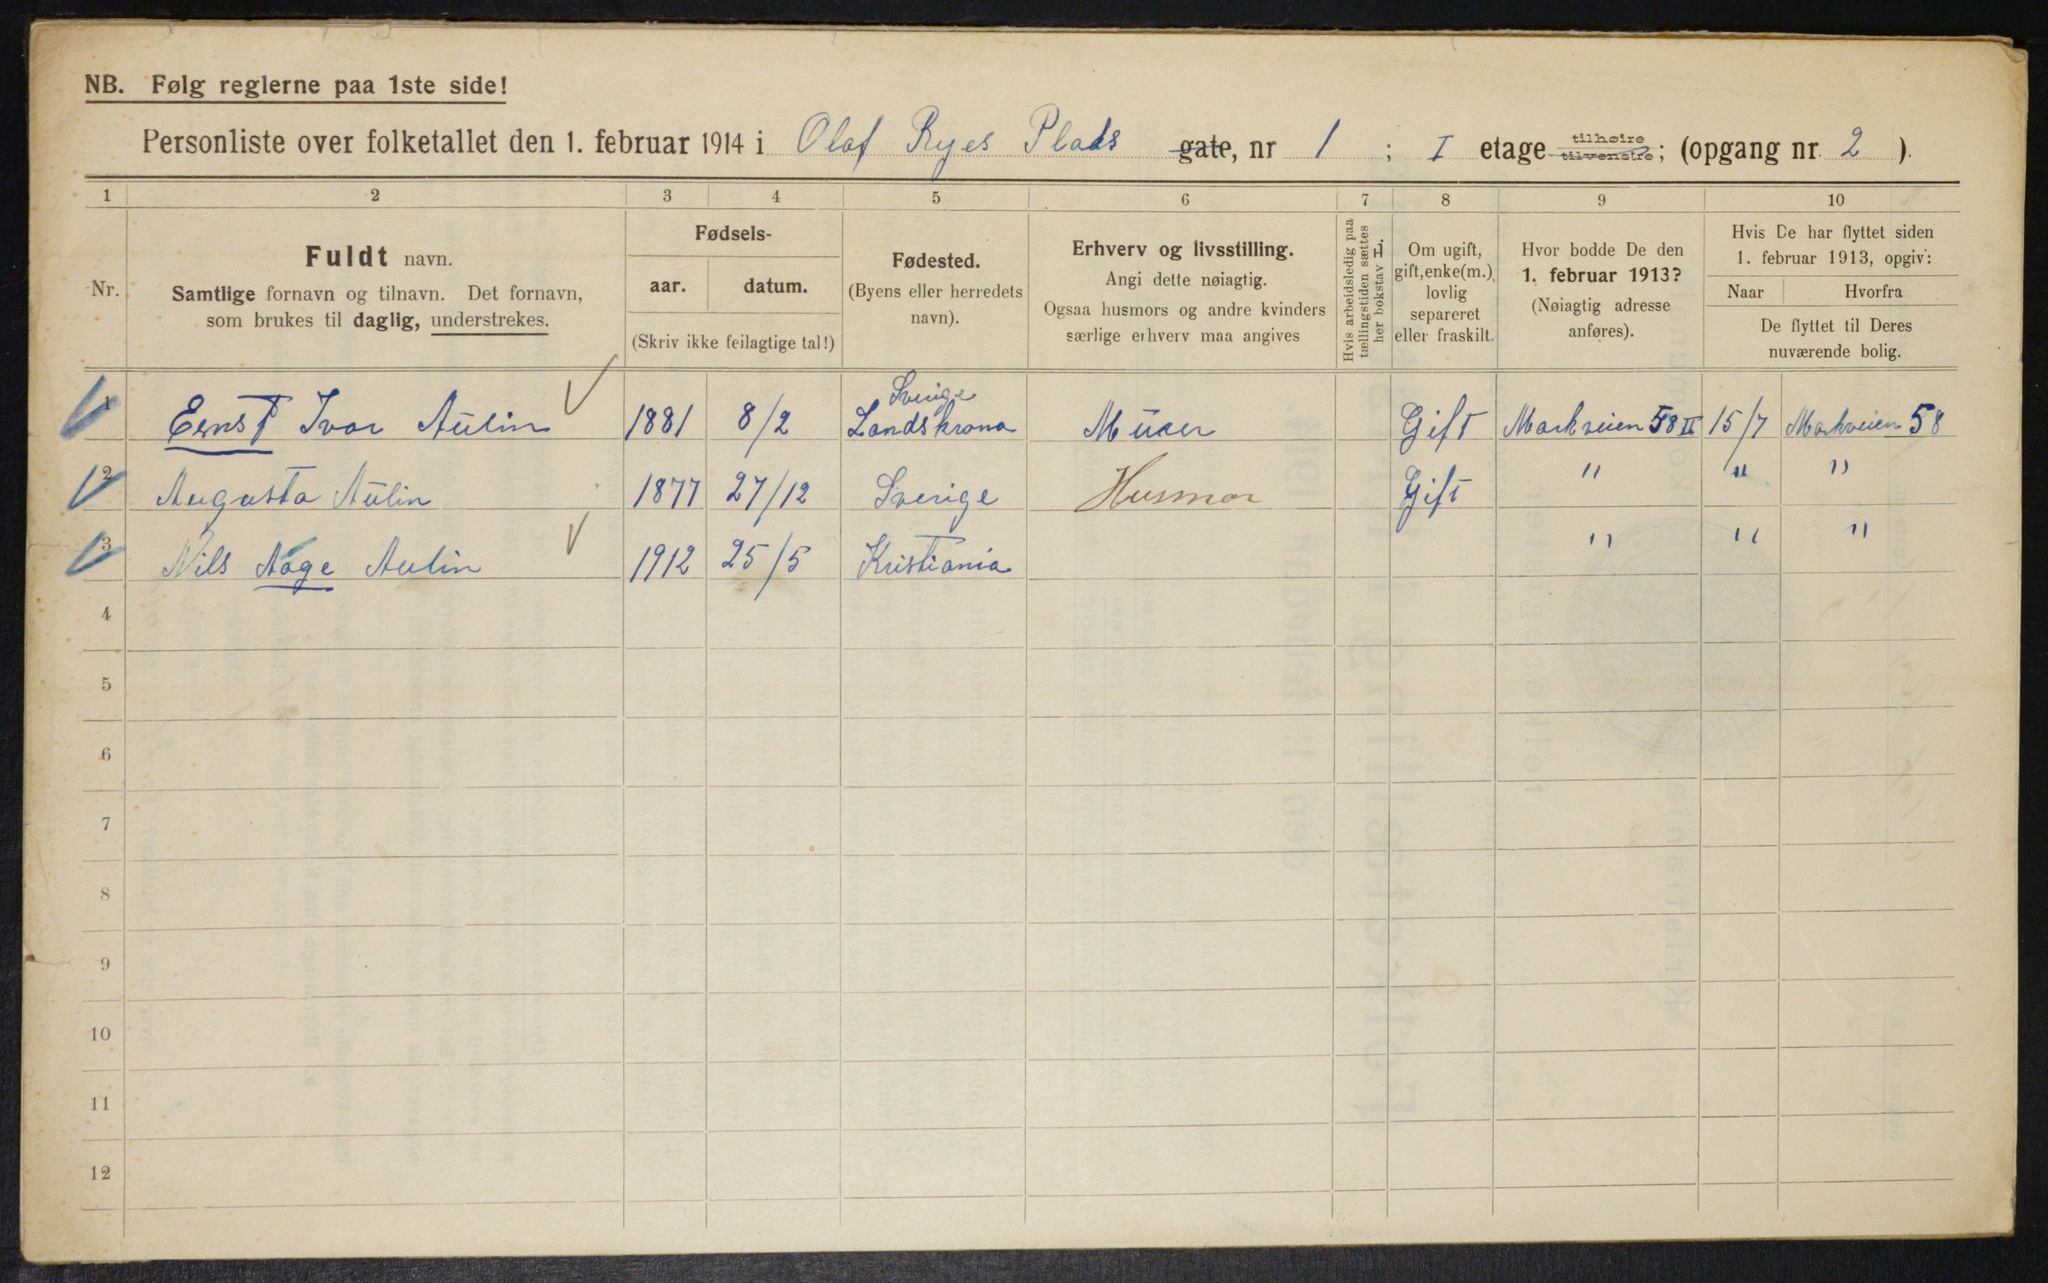 NB. Følg reglerne paa 1ste side!
Personliste over folketallet den 1. februar 1914 i Olaf Ryes Plads gate, nr 1 ; I etage tilhøire tilvenstre; (opgang nr. 2 ).
1 2 3 4 5 6 7 8 9 10
Nr.
Fuldt navn.
Samtlige fornavn og tilnavn. Det fornavn,
som brukes til daglig, understrekes.
Fødsels-
aar. datum.
(Skriv ikke feilagtige tal!)
Fødested.
(Byens eller herredets
navn).
Erhverv og livsstilling.
Angi dette nøiagtig.
Ogsaa husmors og andre kvinders
særlige erhverv maa angives
Hvis arbeidsledig paa
tællingstiden sættes
her bokstav L.
Om ugift,
gift, enke(m.),
lovlig
separeret
eller fraskilt.
Hvor bodde De den
1. februar 1913?
(Nøiagtig adresse
anføres).
Hvis De har flyttet siden
1. februar 1913, opgiv:
Naar Hvorfra
De flyttet til Deres
nuværende bolig.
1 Ernst Ivar Aulin 1881 8/2 Sverige Landskrona Murer Gift Markveien 58 II 15/7 Markveien 58
2 Augusta Aulin 1877 27/12 Sverige Husmor Gift " " "
3 Nils Aage Aulin 1912 25/5 Kristiania " " "
4
5
6
7
8
9
10
11
12